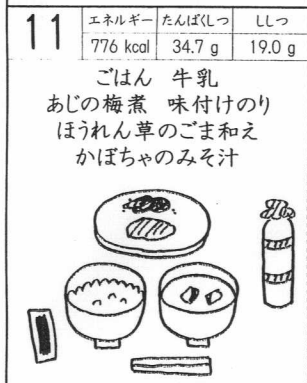 11
エネルギー たんぱくしつ ししつ
776 kcal 34.7 g 19.0 g
ごはん 牛乳
あじの梅煮 味付けのり
ほうれん草のごま和え
かぼちゃのみそ汁